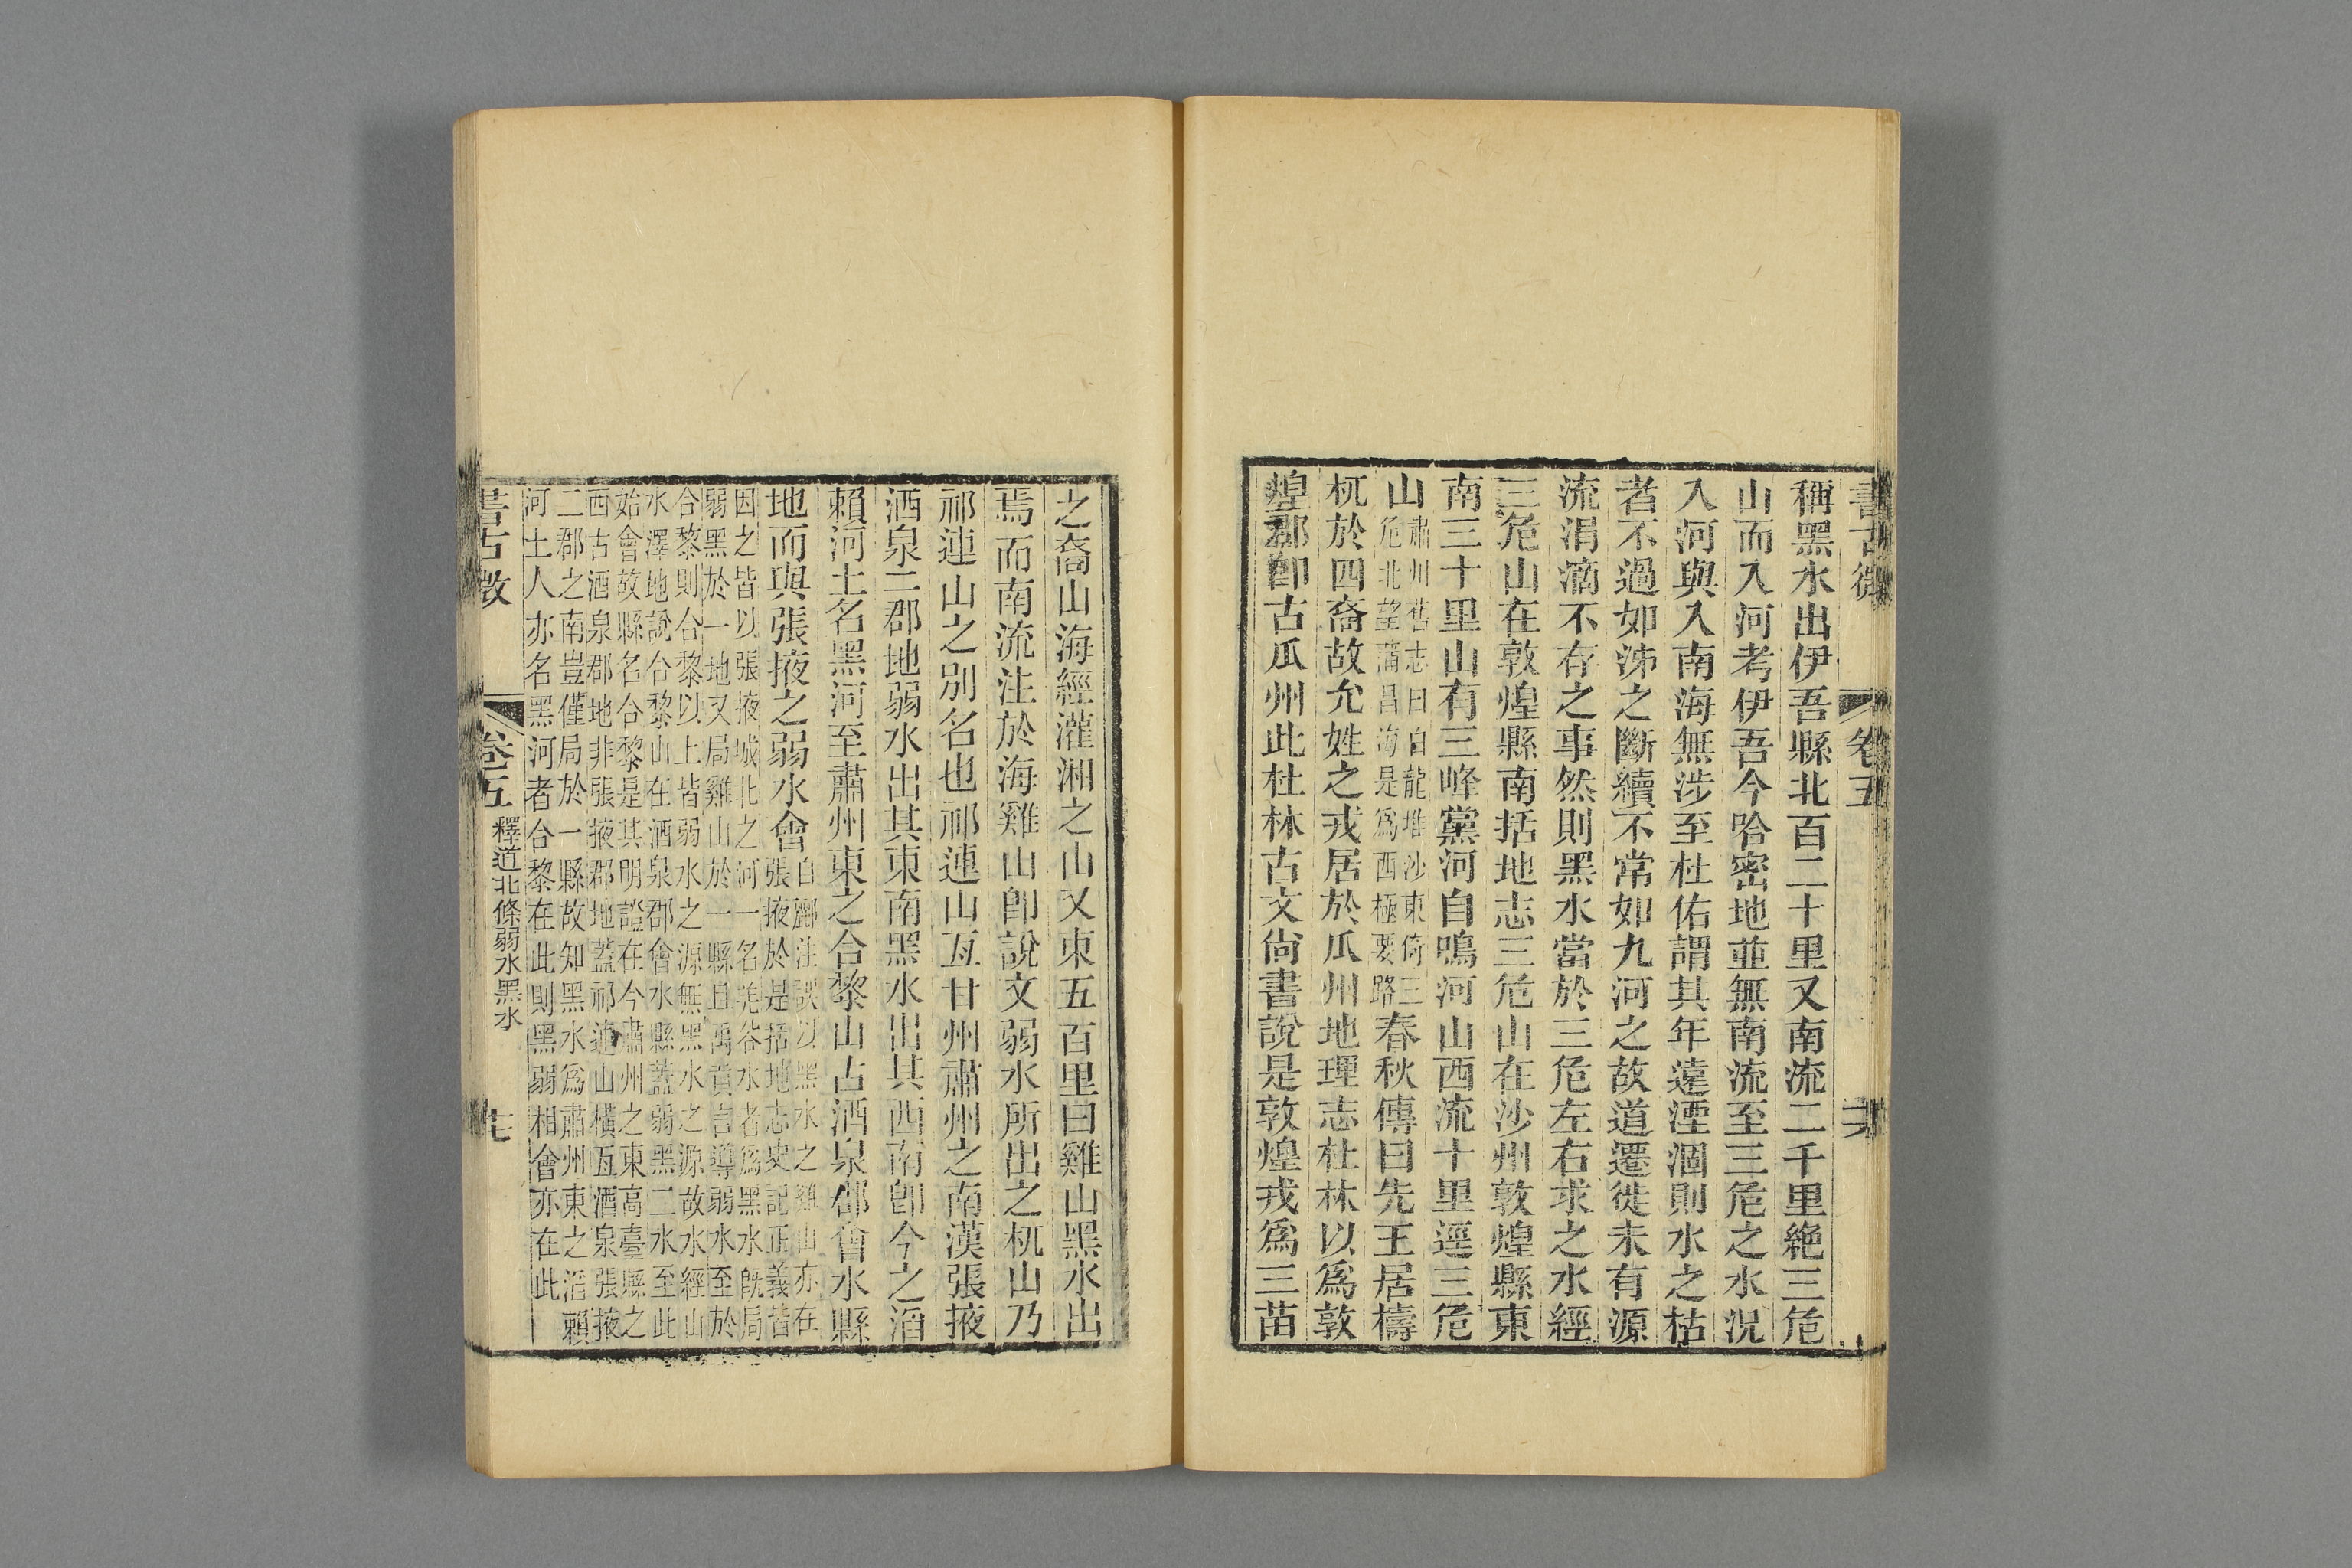 書古微 卷五
稱黑水出伊吾縣北百二十里又南流二千里絶三危
山而入河考伊吾今哈密地並無南流至三危之水況
入河與入南海無涉至杜佑謂其年遠湮涸則水之枯
者不過如沛之斷續不常如九河之故道遷徙未有源
流涓滴不存之事然則黑水當於三危左右求之水經
三危山在敦煌縣南括地志三危山在沙州敦煌縣東
南三十里山有三峰黨河自鳴河山西流十里逕三危
山肅州舊志曰白龍堆沙東倚三
危北望蒲昌海是爲西極要路春秋傳曰先王居檮
杌於四裔故允姓之戎居於瓜州地理志杜林以爲敦
煌郡卽古瓜州此杜林古文尙書說是敦煌戎爲三苗
之裔山海經灌湘之山又東五百里曰雞山黑水出
焉而南流注於海雞山卽說文弱水所出之杌山乃
祁連山之別名也祁連山亙甘州肅州之南漢張掖
酒泉二郡地弱水出其東南黑水出其西南卽今之滔
賴河土名黑河至肅州東之合黎山古酒泉郡會水縣
地而與張掖之弱水會自酈注誤以黑水之雞山亦在
張掖於是括地志史記正義皆
因之皆以張掖城北之河一名羌谷水者爲黑水旣局
弱黑於一地又局雞山於一縣且禹貢言導弱水至於
合黎則合黎以上皆弱水之源無黑水之源故水經山
水澤地說合黎山在酒泉郡會水縣蓋弱黑二水至此
始會故縣名合黎是其明證在今肅州之東高臺縣之
西古酒泉郡地非張掖郡地蓋祁連山橫亙酒泉張掖
二郡之南豈僅局於一縣故知黑水爲肅州東之滔賴
河土人亦名黑河者合黎在此則黑弱相會亦在此
書古微 卷五 釋道北條弱水黑水